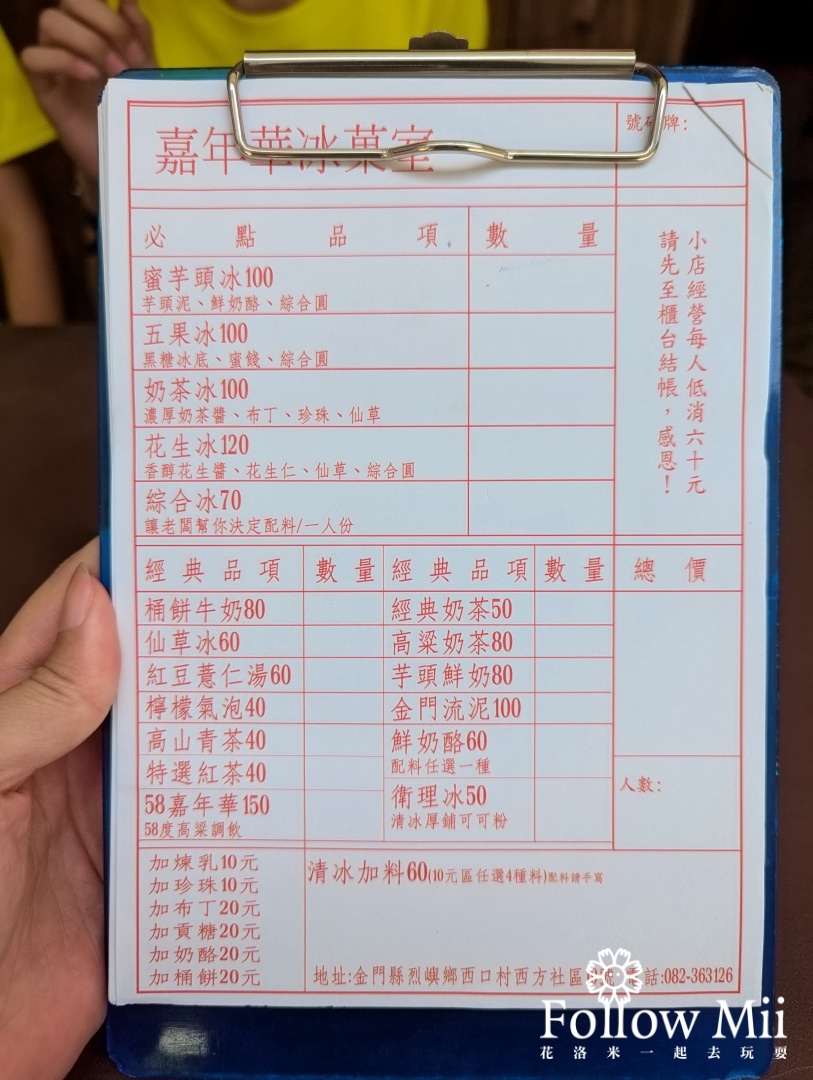 嘉年華冰菓室
號碼牌:
必點品項 數量
蜜芋頭冰100
芋頭泥、鮮奶酪、綜合圓
五果冰100
黑糖冰底、蜜餞、綜合圓
奶茶冰100
濃厚奶茶醬、布丁、珍珠、仙草
花生冰120
香醇花生醬、花生仁、仙草、綜合圓
綜合冰70
讓老闆幫你決定配料/一人份
小店經營每人低消六十元
請先至櫃台結帳，感恩！
經典品項 數量 經典品項 數量 總價
桶餅牛奶80 經典奶茶50
仙草冰60 高粱奶茶80
紅豆薏仁湯60 芋頭鮮奶80
檸檬氣泡40 金門流泥100
高山青茶40 鮮奶酪60
配料任選一種
特選紅茶40
58嘉年華150 衛理冰50
58度高粱調飲 清冰厚鋪可可粉
人數:
加煉乳10元
加珍珠10元
加布丁20元
加貢糖20元
加奶酪20元
加桶餅20元
清冰加料60(10元區任選4種料)配料請手寫
地址:金門縣烈嶼鄉西口村西方社區 電話:082-363126
Follow Mii
花洛米一起去玩耍